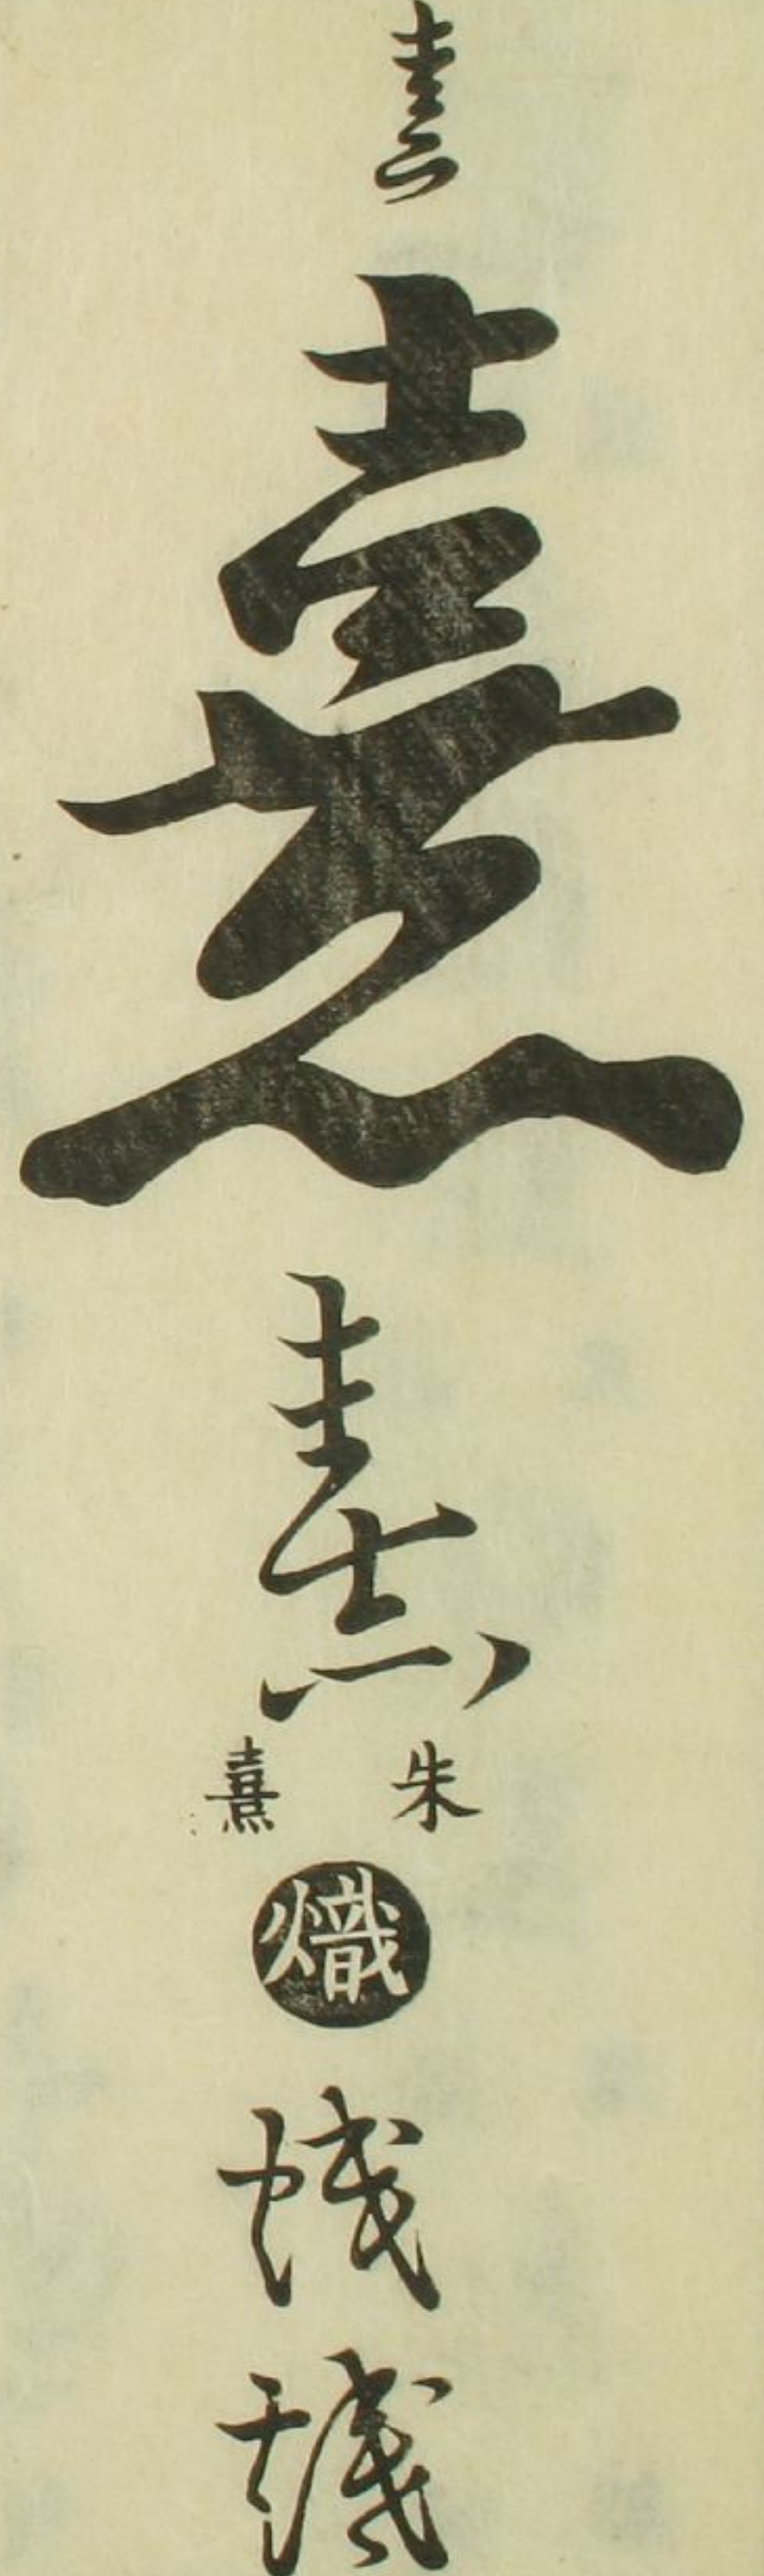 熹熹熹朱熹熾熾熾